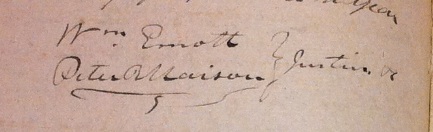 year
Wm Emott
Peter R Maison } Justices